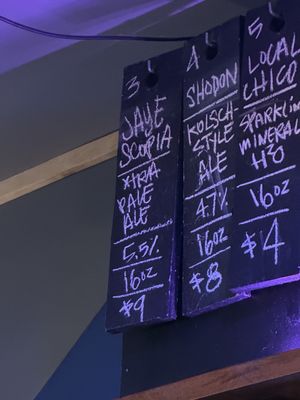 3
JAYE
SCOPIA
XTRA
PALE
ALE
5.5%
16oz
$9
4
SHODON
KOLSCH-
STYLE
ALE
4.7%
16oz
$8
5
LOCAL
CHICO
SPARKLIN
MINERAL
H2O
16oz
$4